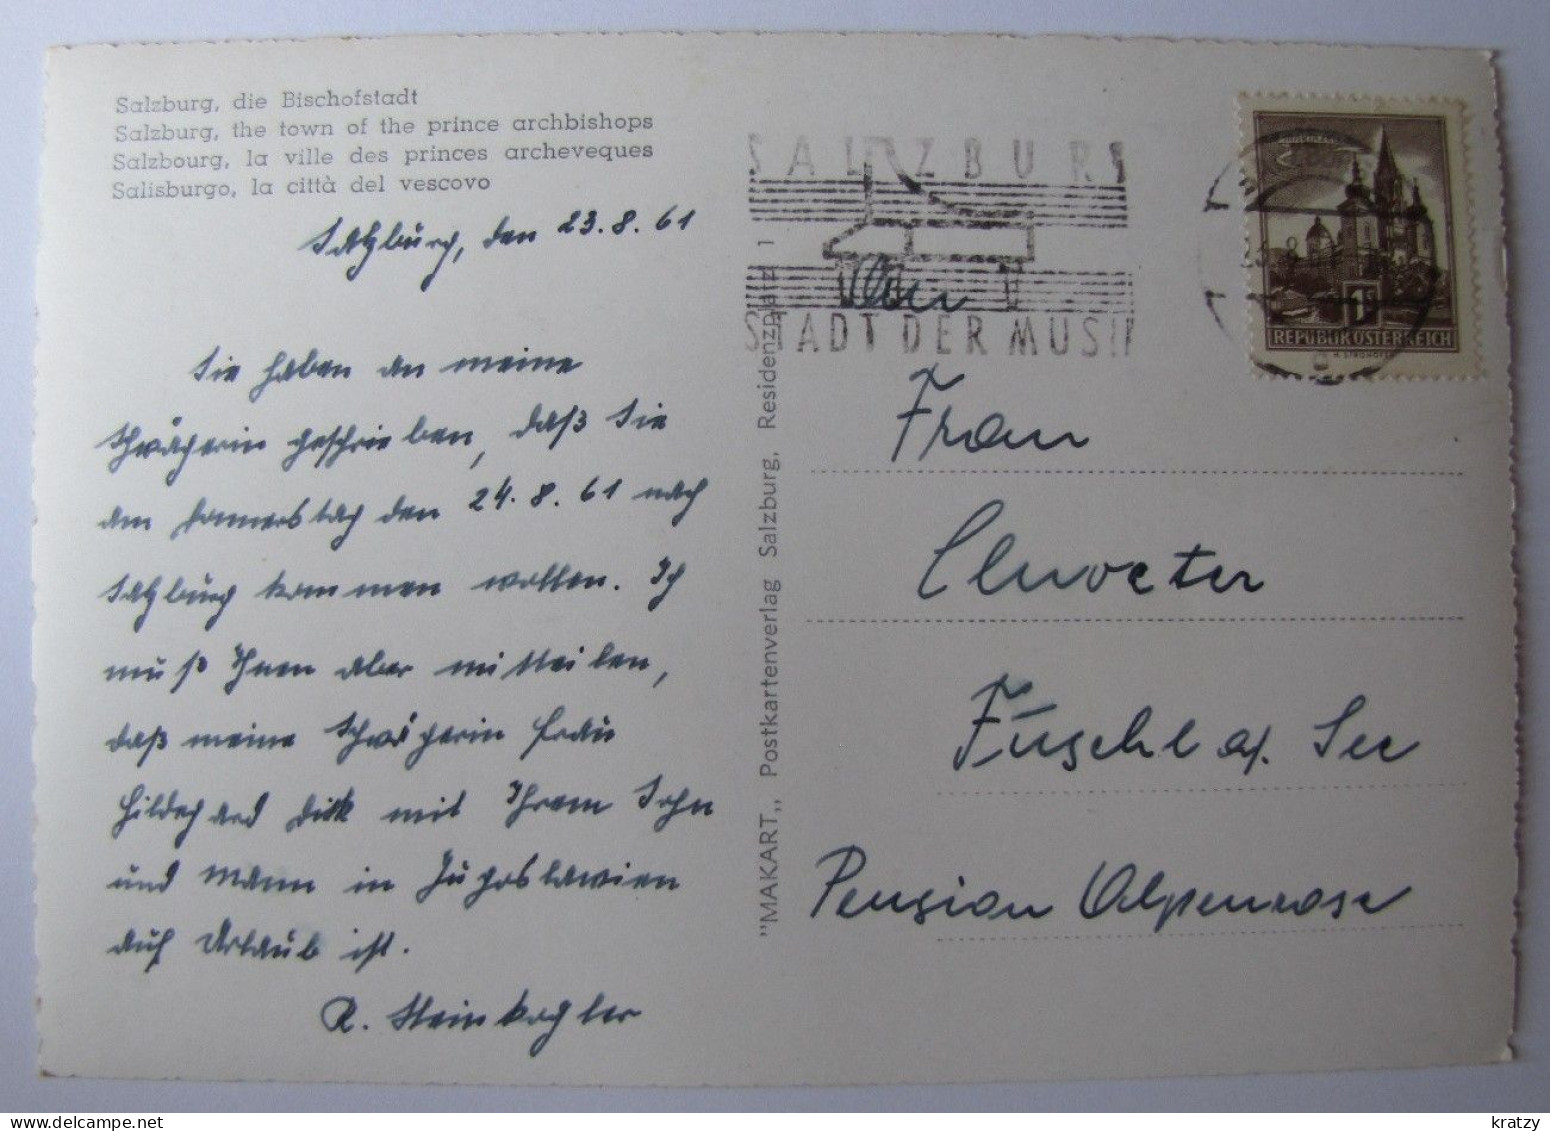 Salzburg, die Bischofstadt
Salzburg, the town of the prince archbishops
Salzbourg, la ville des princes archeveques
Salisburgo, la città del vescovo
Salzburg, den 23.8.61
Sie haben an meine
Schwägerin geschrieben, daß Sie
am Donnerstag den 24.8.61 nach
Salzburg kommen wollen. Ich
muß Ihnen aber mitteilen,
daß meine Schwägerin Frau
Hildegard Dick mit Ihrem Sohn
und Mann in Jugoslawien
auf Urlaub ist.
R. Steinkogler
"MAKART„ Postkartenverlag Salzburg, Residenzplatz 1
SALZBURG
STADT DER MUSIK
1S
REPUBLIK ÖSTERREICH
Frau
Fuschl a. See
Pension Alpenrose
kratzy